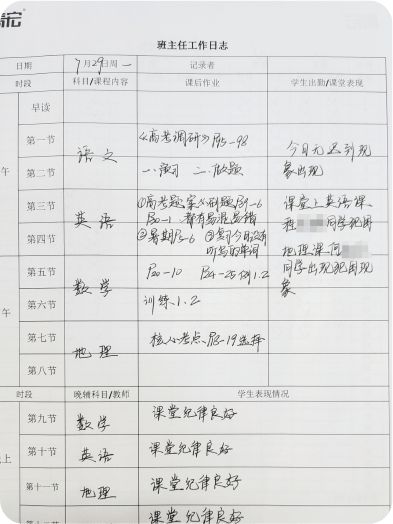 班主任工作日志
日期 7月29日周一 记录者
时段 科目/课程内容 课后作业 学生出勤/课堂表现
早读
第一节 语文 《高考调研》P95-98 今日无迟到现
第二节 一、演习 二、做题 象出现
第三节 英语 ①高考题案 课堂上英语课、
第四节 ②暑期P5-6 ③复习今日没有 程 同学犯困
听写的单词 地理课
第五节 数学 P20-10 P24-25 例1.2 同学出现犯困现
第六节 训练1.2 象
第七节 地理 核心考点 P18-19选择
第八节
时段 晚辅科目/教师 学生表现情况
第九节 数学 课堂纪律良好
第十节 英语 课堂纪律良好
第十一节 地理 课堂纪律良好
课堂纪律良好
午
午
上